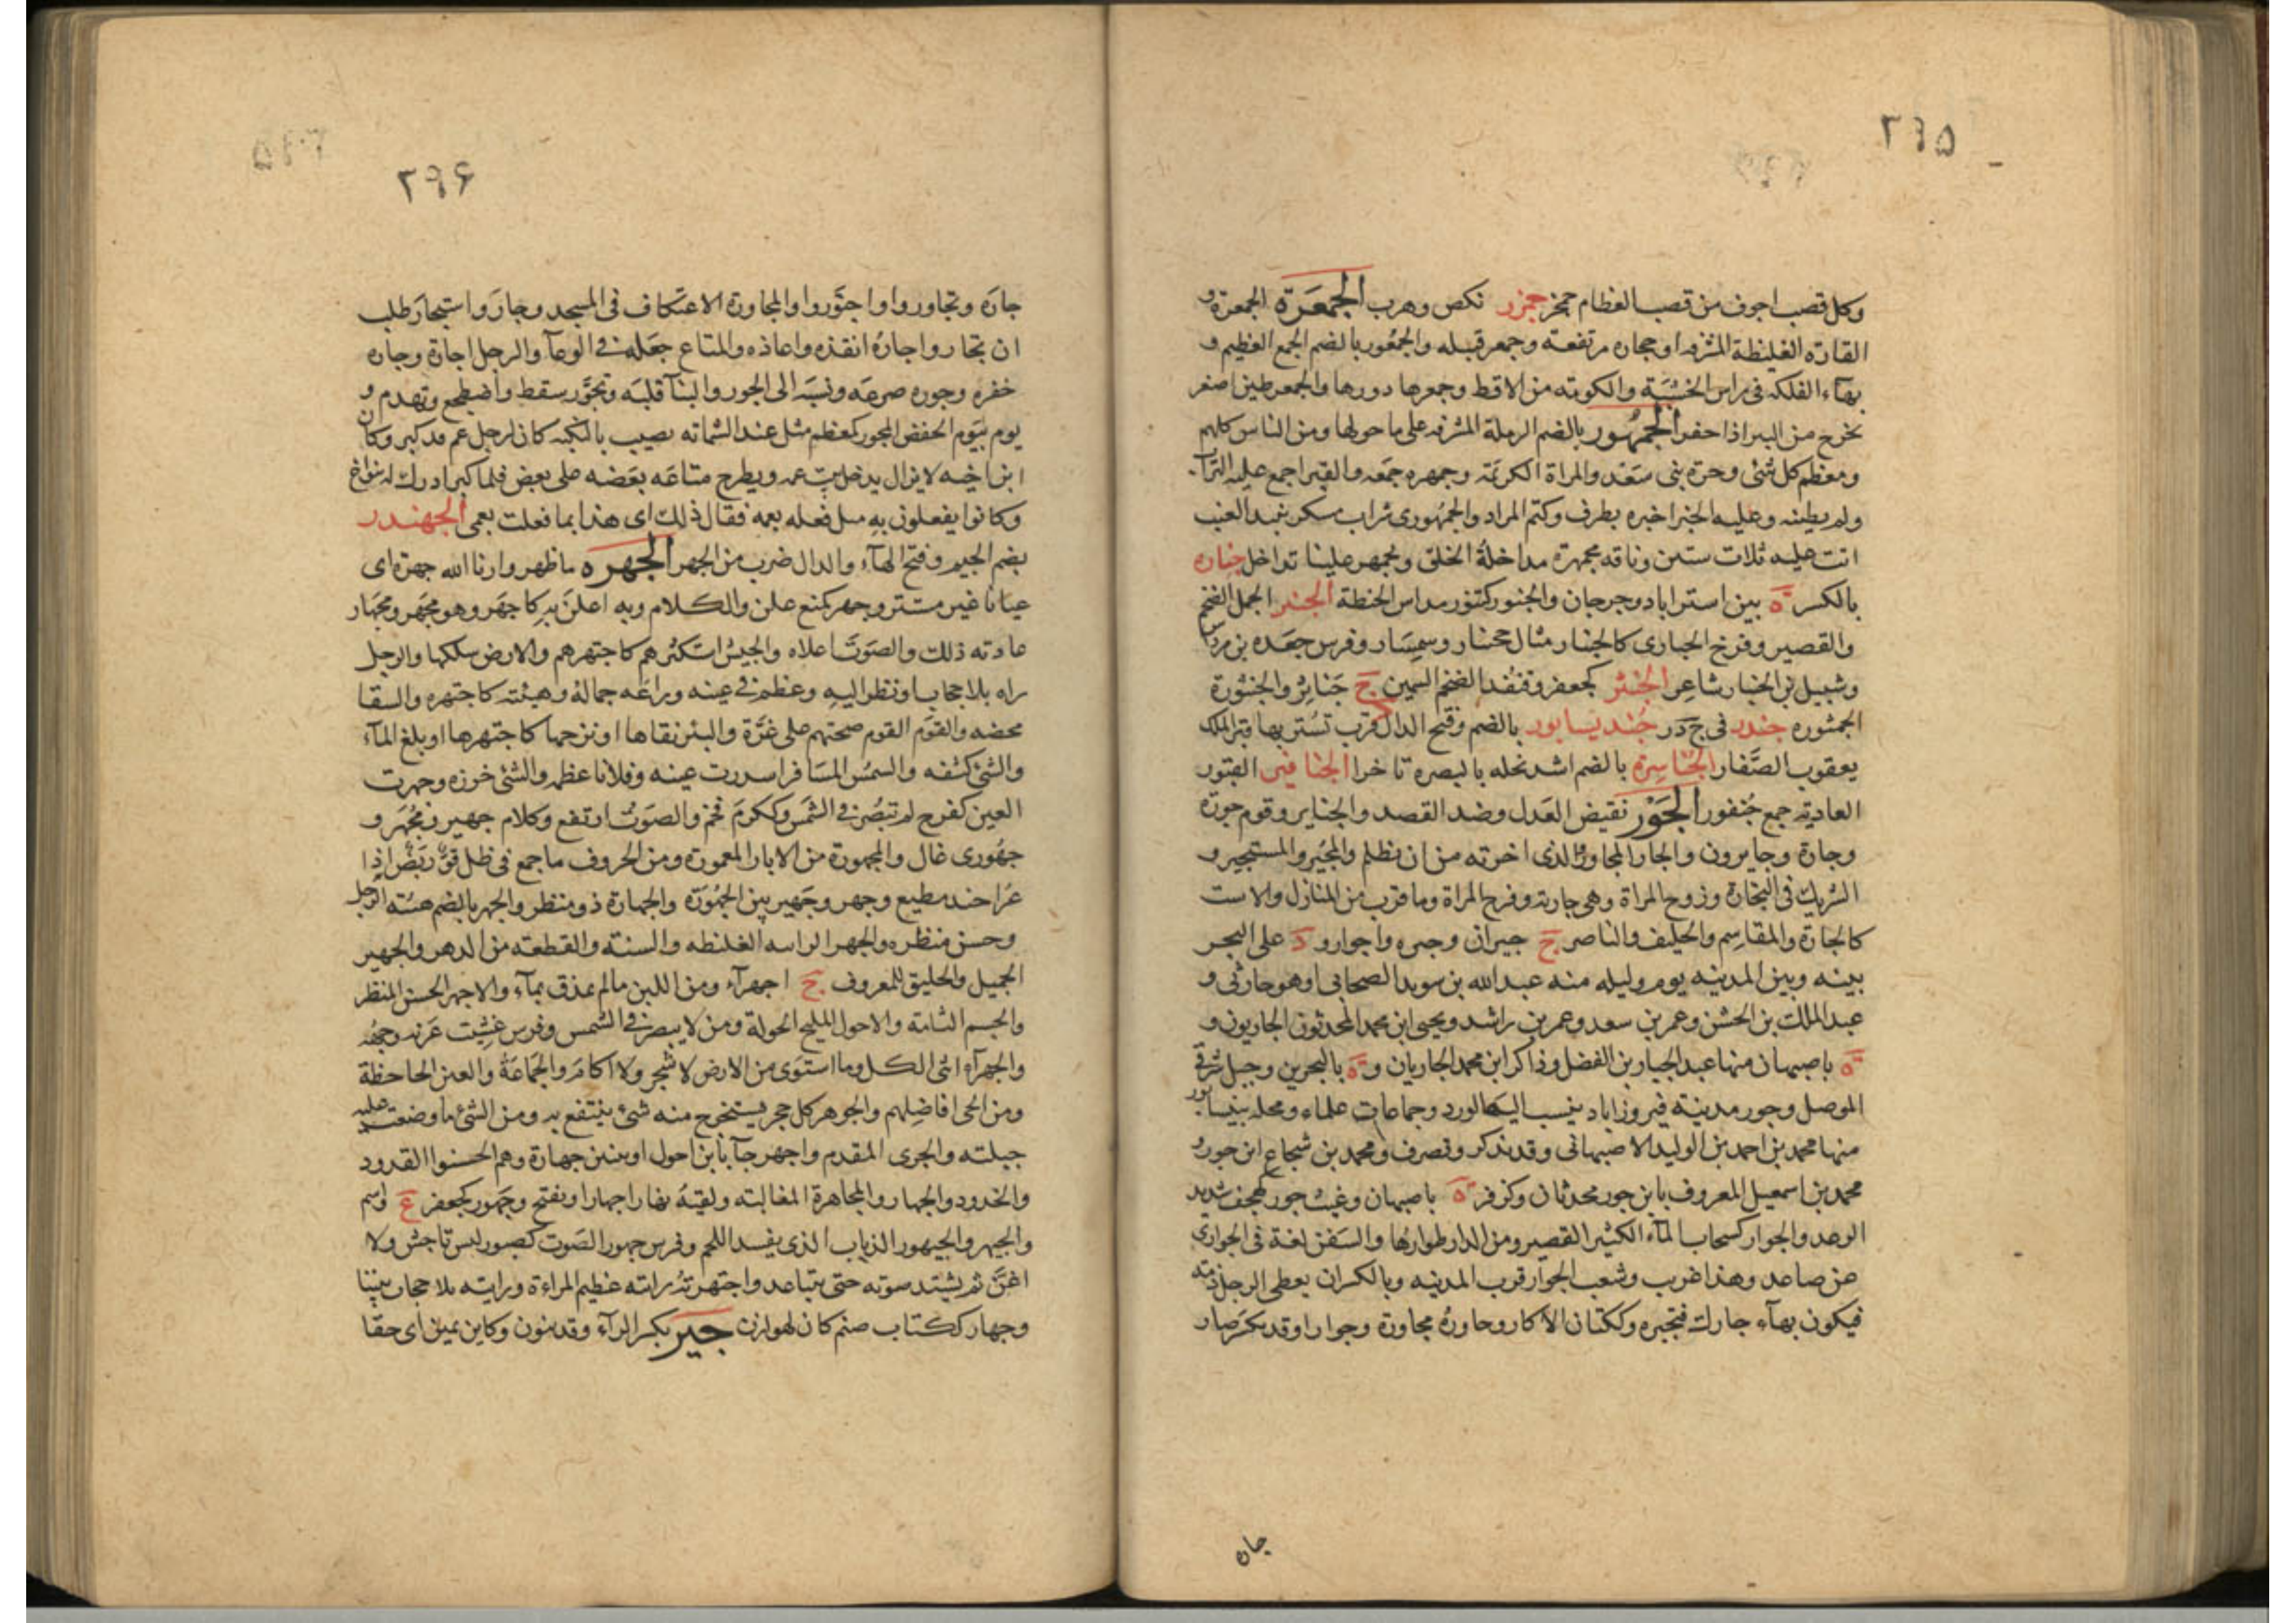 ٢٩٥
وكل قصب اجوف من قصب العظام جمخر جمزر نكص وهرب الجمعرة الجمعرة و
القارة الغليظة المشرفه او حجاره مرتفعة وجمعر قبيله والجمعور بالضم الجمع العظيم و
بهاء الفلكه فى راس الخشبة والكوته من الاقط وجمعرها دورها والجمعر طين اصفر
يخرج من البئر اذا حفر الجمهور بالضم الرملة المشرفه على ما حولها ومن الناس كلهم
ومعظم كل شئ وحرة بنى سعد والمراة الكريمة وجمهره جمعه والقبر اجمع عليه التراب
ولم يطينه وعليه الخبر اخبره بطرف وكتم المراد والجمهورى شراب مسكر نبيد العنب
اتت عليه ثلاث سنين وناقه مجمهرة مداخلة الخلق وتجمهر علينا تداخل جناره
بالكسر ة بين استراباد وجرجان والجنور كتنور مداس الحنطة الجنبر الجمل الضخم
والقصير وفرخ الحبارى كالجنبار مثال جحنبار وسمسار وفرس جعده بن مرداس
وشبيل بن الجنبار شاعر الجنثر كجعفر وقنفد الضخم السمين ج جنائر والجنثورة
الجمثوره جندر فى ج د ر جنديسابور بالضم وفتح الدال قرب تستر بها قبر الملك
يعقوب الصفار الجناسرة بالضم اشد نخله بالبصره تاخرا الجنافير القبور
العاديه جمع جنفور الجور نقيض العدل وضد القصد والجناير وقوم جورة
وجارة وجايرون والجار المجاور والذى اجرته من ان نظلم والمجير والمستجير و
الشريك فى التجارة وزوج المراة وهى جارته وفرج المراة وما قرب من المنازل والاست
كالجارة والمقاسم والحليف والناصر ج جيران وجيره واجوار و د على البحر
بينه وبين المدينه يوم وليله منه عبد الله بن سويد الصحابى او هو حارثى و
عبد الملك بن الحسن وعمر بن سعد وعمر بن راشد ويحيى ابن محمد المحدثون الجاريون و
ة باصبهان منها عبد الجبار بن الفضل وذاكر ابن محمد الجاريان و ة بالبحرين وجبل شرقى
الموصل وجور مدينة فيروزاباد ينسب اليها الورد وجماعات علماء ومحله بنيسابور
منها محمد بن احمد بن الوليد الاصبهانى وقد تذكر وتصرف ومحمد بن شجاع ابن جور و
محمد بن اسمعيل المعروف بابن جور محدثان وكزفر ة باصبهان وغيث جور كهجف شديد
الوعد والجوار كسحاب الماء الكثير القصير ومن الدار طوارها والسفن لغة فى الجوارى
عن صاعد وهذا غريب وشعب الجوار قرب المدينه وبالكسر ان يعطى الرجل ذمة
فيكون بهاء جارك فتجيره وككتان الاكار وجاوره مجاورة وجوارا وقد يكسر صار
جاره
٢٩۶
جاره وتجاوروا واجتوروا والمجاورة الاعتكاف فى المسجد وجار واستجار طلب
ان يجار واجاره انقذه واعاذه والمتاع جعله فى الوعاء والرجل اجارة وجاره
خفره وجوره صرعه ونسبه الى الجور والبناء قلبه وتجور سقط واضطجع وتهدم و
يوم بيوم الحفض المجور كمعظم مثل عند الشماته يصيب بالنكبه كان لرجل عم قد كبر وكان
ابن اخيه لا يزال يدخل بيت عمه ويطرح متاعه بعضه على بعض فلما كبر ادرك له بنو اخ
وكانوا يفعلون به مثل فعله بعمه فقال ذلك اى هذا بما فعلت بعمى الجهندر
بضم الجيم وفتح الهاء والدال ضرب من الجهر الجهره ما ظهر وارنا الله جهرة اى
عيانا غير مستتر وجهر كمنع علن والكلام وبه اعلن به كاجهر وهو مجهر ومجهار
عادته ذلك والصوت اعلاه والجيش استكثرهم كاجتهرهم والارض سلكها والرجل
راه بلا حجاب او نظر اليه وعظم فى عينه وراعه جماله وهيئته كاجتهره والسقا
مخضه والقوم القوم صبحتهم على غرة والبئر نقاها او نزحها كاجتهرها او بلغ الماء
والشئ كشفه والشمس المسافر اسدرت عينه وفلانا عظمه والشئ خرزه وجهرت
العين كفرح لم تبصر فى الشمس وككرم فخم والصوت ارتفع وكلام جهير ومجهر و
جهورى عال والمجهورة من الابار المعمورة ومن الحروف ما جمع فى ظل قو ربض اذا
غزا جند مطيع وجهر وجهير بين الجهورة والجهارة ذو منظر والجهر بالضم هيئة الرجل
وحسن منظره والجهر الرابيه الغليظه والسنة والقطعه من الدهر والجهير
الجميل والخليق للمعروف ج اجهراء ومن اللبن ما لم يمذق بماء والاجهر الحسن المنظر
والجسم التامة والاحول المليح الحولة ومن لا يبصر فى الشمس وفرس غشيت غرته وجهه
والجهراء انثى الكل وما استوى من الارض لا شجر ولا اكام والجماعة والعين الجاحظة
ومن الحى افاضلهم والجوهر كل حجر يستخرج منه شئ ينتفع به ومن الشئ ما وضعت عليه
جبلته والجرى المقدم واجهر جاء بابن احول او ببنين جهارة وهم الحسنوا القدود
والخدود والجهار والمجاهرة المغالبته ولقيته نهارا جهارا ويفتح وجهور كجعفر ع واسم
والجيهر والجيهور الذباب الذى يفسد اللحم وفرس جهور الصوت كصبور ليس باجش ولا
اغن ثم يشتد صوته حتى يتباعد واجتهرته راته عظيم المراءة ورايته بلا حجاب بيننا
وجهار ككتاب صنم كان لهوازن جير بكسر الراء وقد ينون وكاين يمين اى حقا